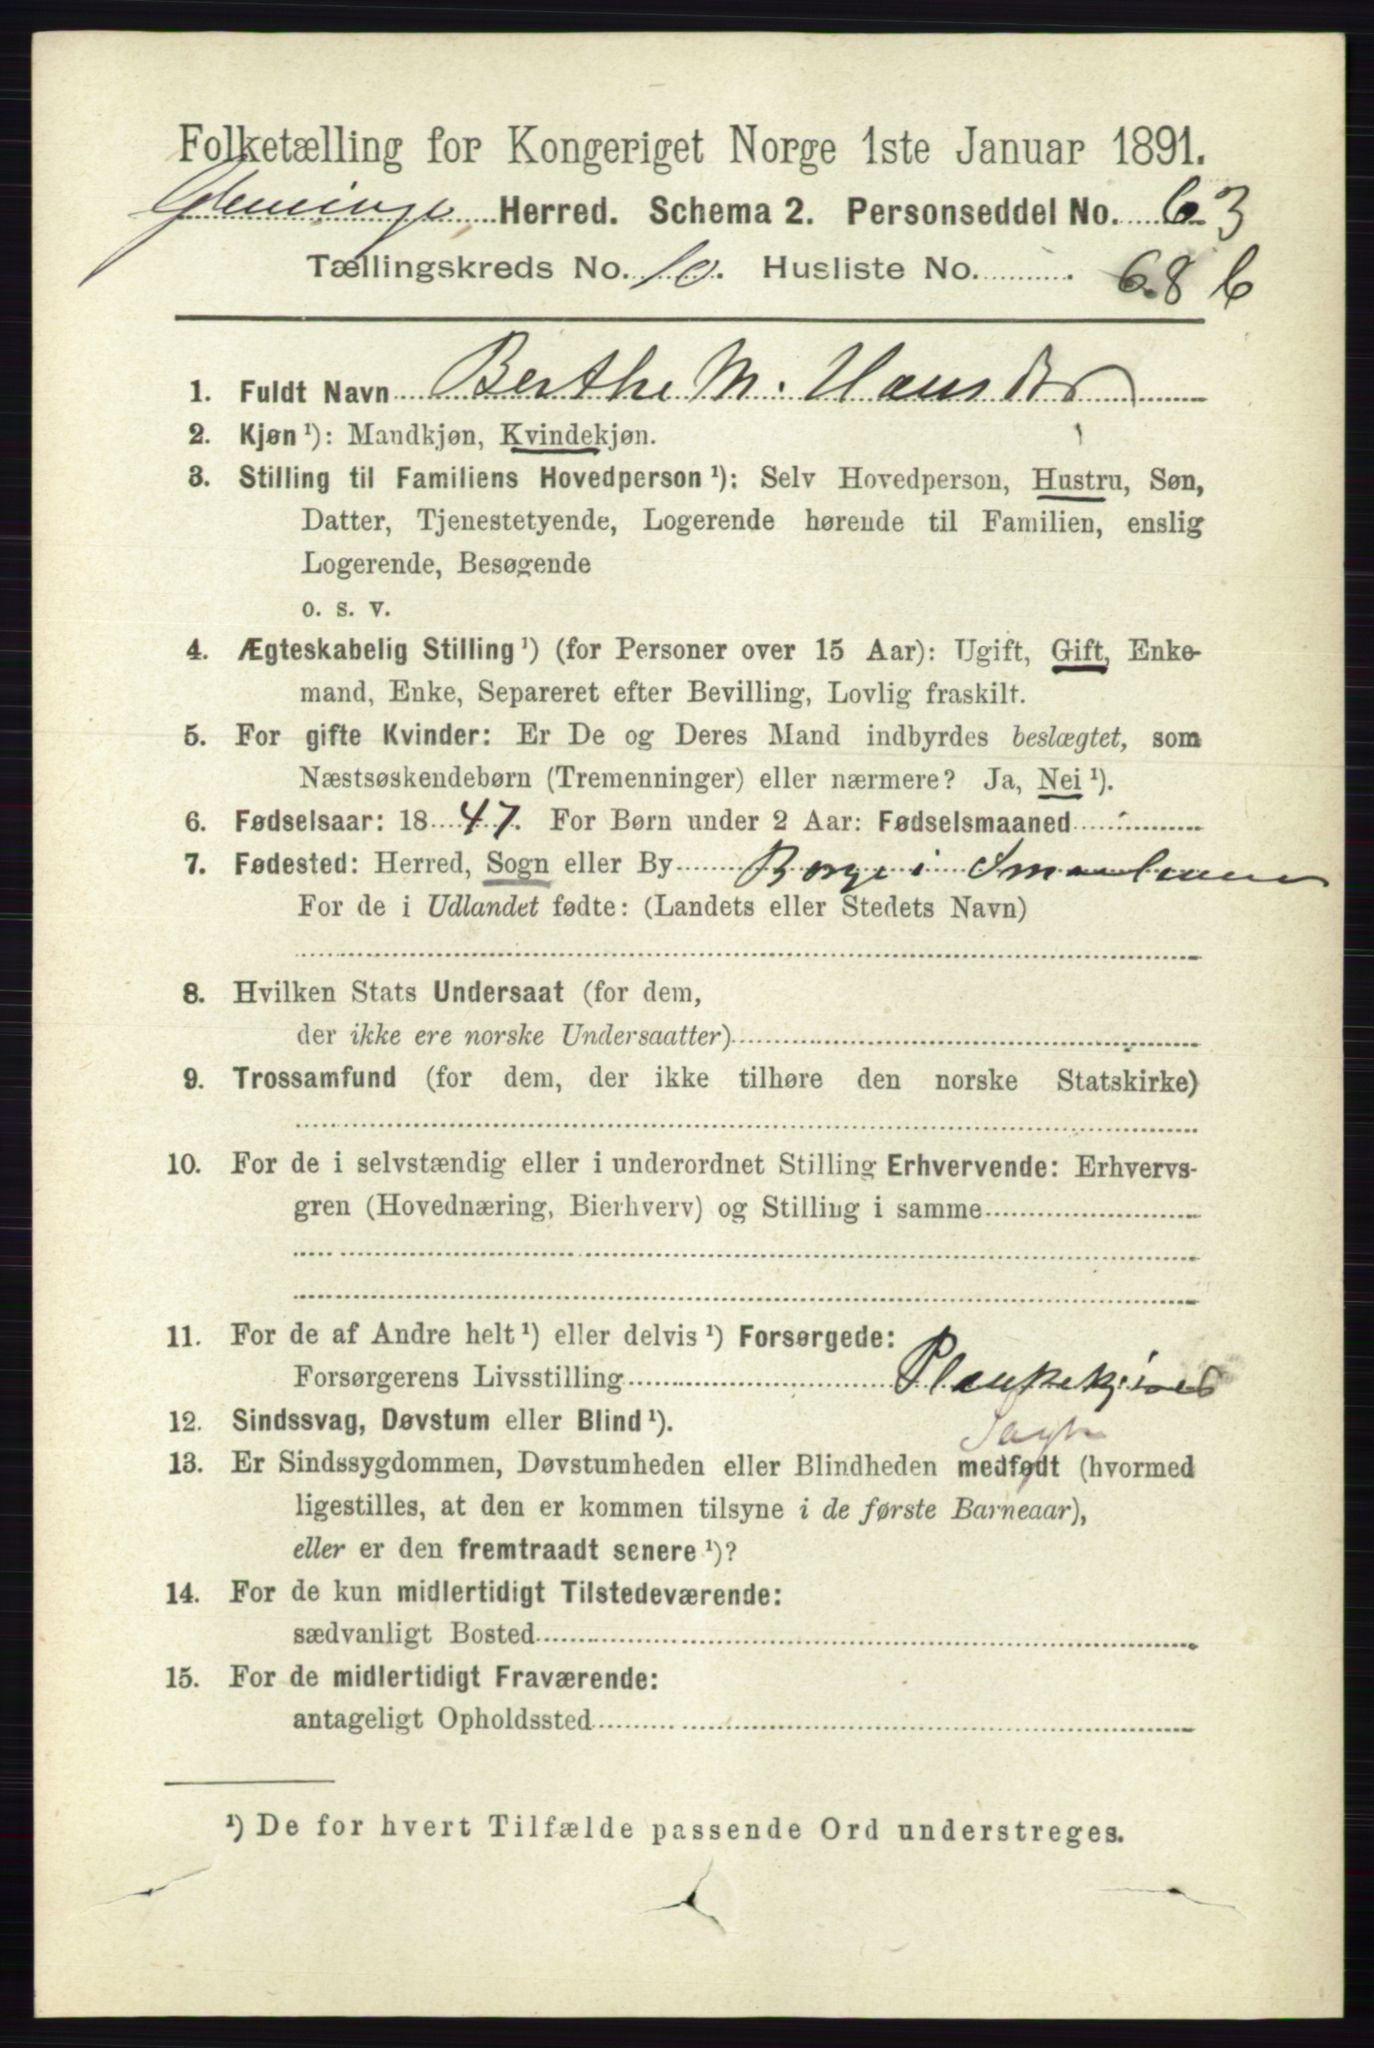 Folketælling for Kongeriget Norge 1ste Januar 1891.
Glemminge Herred. Schema 2. Personseddel No. 63
Tællingskreds No. 10. Husliste No. 68 b
1. Fuldt Navn Berthe M. Hansdtr
2. Kjøn ¹): Mandkjøn, Kvindekjøn.
3. Stilling til Familiens Hovedperson ¹): Selv Hovedperson, Hustru, Søn,
Datter, Tjenestetyende, Logerende hørende til Familien, enslig
Logerende, Besøgende
o. s. v.
4. Ægteskabelig Stilling ¹) (for Personer over 15 Aar): Ugift, Gift, Enke-
mand, Enke, Separeret efter Bevilling, Lovlig fraskilt.
5. For gifte Kvinder: Er De og Deres Mand indbyrdes beslægtet, som
Næstsøskendebørn (Tremenninger) eller nærmere? Ja, Nei ¹).
6. Fødselsaar: 1847. For Børn under 2 Aar: Fødselsmaaned
7. Fødested: Herred, Sogn eller By Borge i Smaalenene
For de i Udlandet fødte: (Landets eller Stedets Navn)
8. Hvilken Stats Undersaat (for dem,
der ikke ere norske Undersaatter)
9. Trossamfund (for dem, der ikke tilhøre den norske Statskirke)
10. For de i selvstændig eller i underordnet Stilling Erhvervende: Erhvervs-
gren (Hovednæring, Bierhverv) og Stilling i samme
11. For de af Andre helt ¹) eller delvis ¹) Forsørgede:
Forsørgerens Livsstilling Plankekjører
12. Sindssvag, Døvstum eller Blind ¹).
13. Er Sindssygdommen, Døvstumheden eller Blindheden medfødt (hvormed
ligestilles, at den er kommen tilsyne i de første Barneaar),
eller er den fremtraadt senere ¹)?
14. For de kun midlertidigt Tilstedeværende:
sædvanligt Bosted
15. For de midlertidigt Fraværende:
antageligt Opholdssted
¹) De for hvert Tilfælde passende Ord understreges.